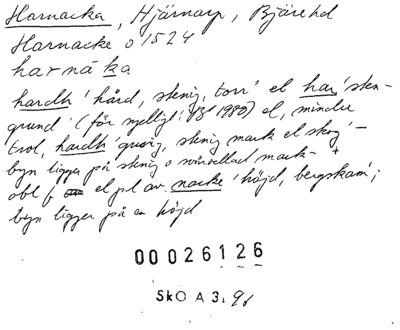 Harnacka, Hjärnarp, Bjäre hd
Harnacke o 1524
harnáka
hardh 'hård, stenig, torr' el har 'sten-
grund' (för ljudl jf 1985) el, mindre
trol, hardh 'grusig, stenig mark el skog' –
byn ligger på stenig o mark – +
obl f el pl av nacke 'höjd, bergskam';
byn ligger på en höjd
00026126
SkO A 3: